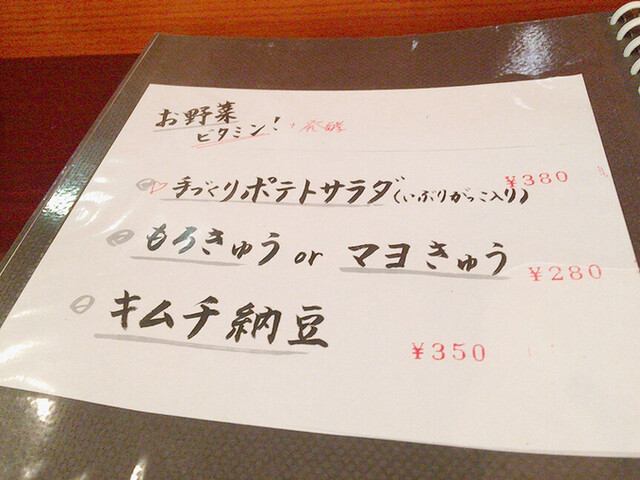 お野菜
ビタミン！ + 発酵
手づくりポテトサラダ（いぶりがっこ入り） ¥380
もろきゅう or マヨきゅう ¥280
キムチ納豆 ¥350